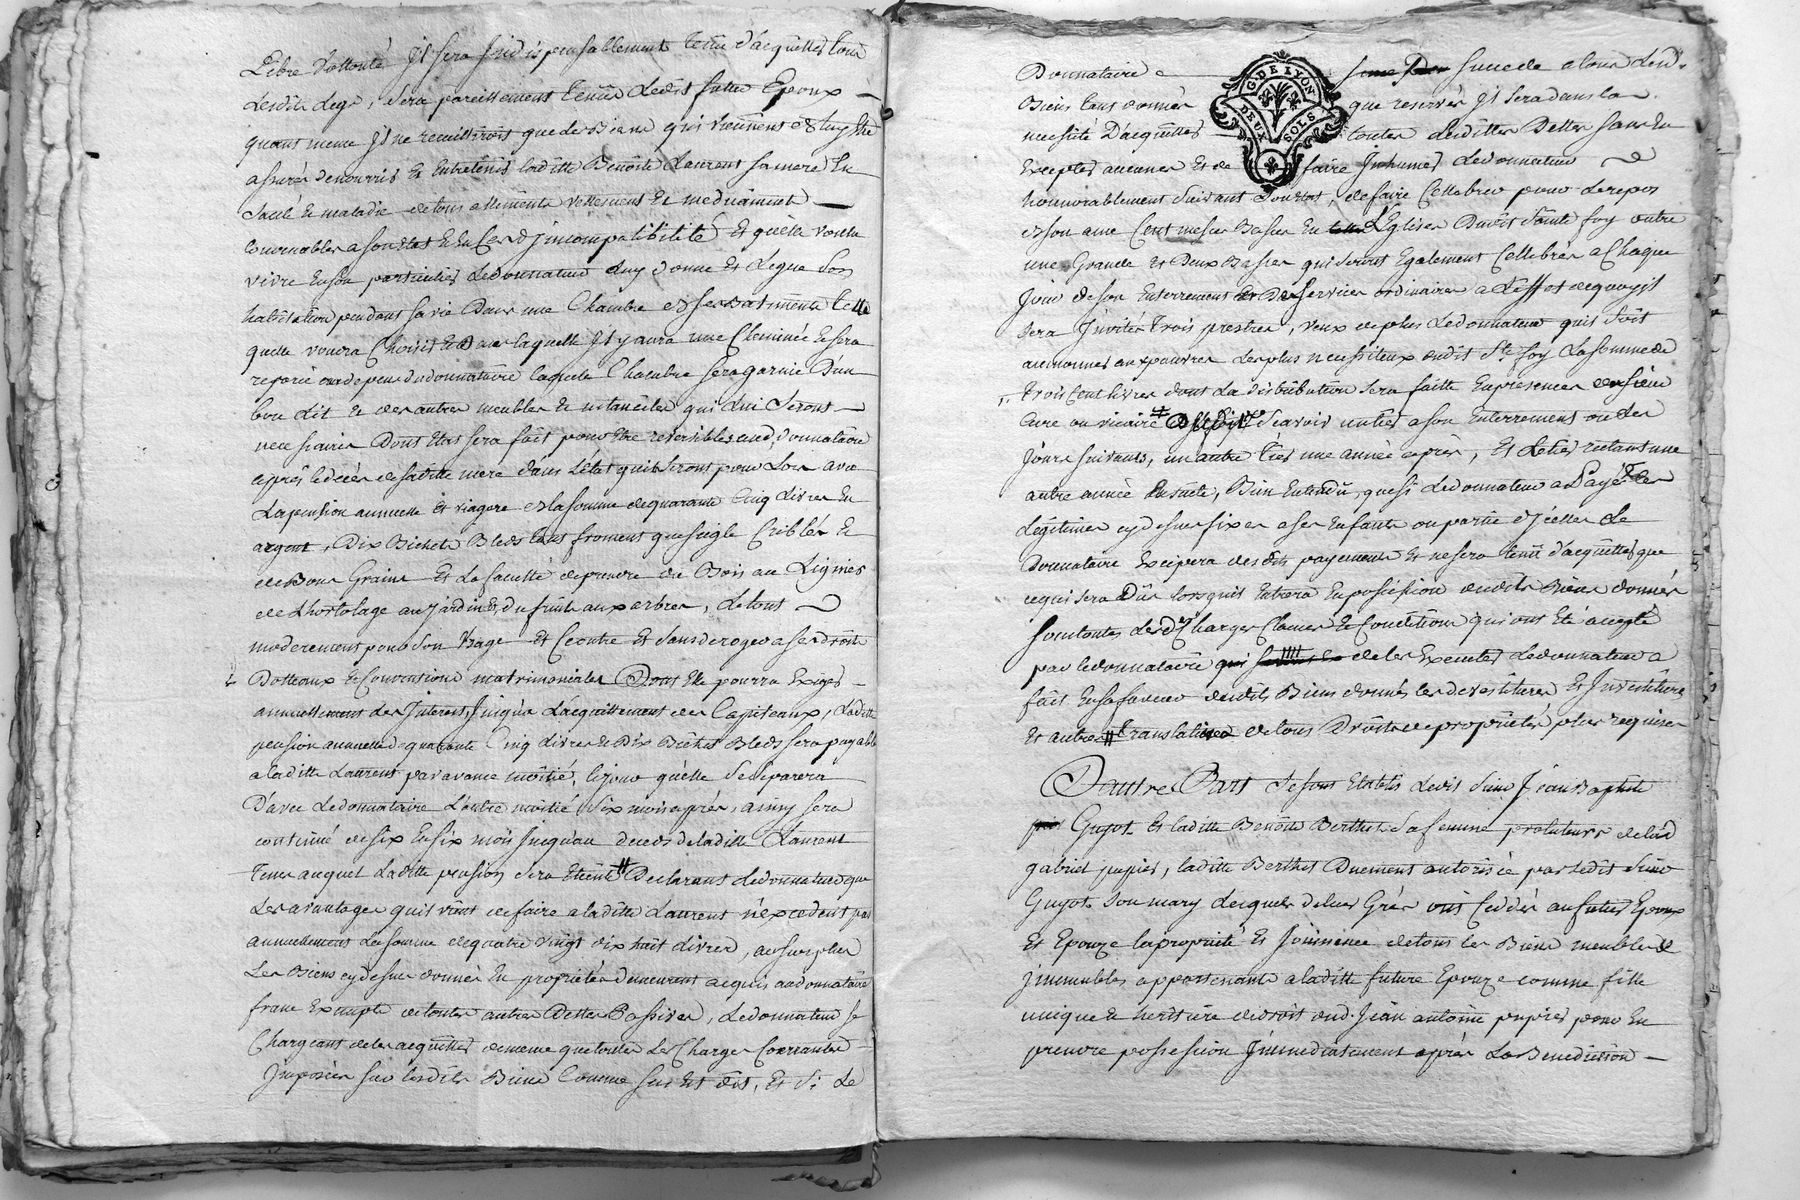 Libre volonté Il sera Indispensablement tenu d'acquitter tous
lesdits legs, sera pareillement tenu ledit futur Epoux
quand meme Il ne recuilliroit que des Biens qui viennent d'estre
assurés de nourrir et Entretenir laditte Benoite Laurent sa mere En
santé et maladie de tous alliments vettements Et medicaments
convenables a son Etat Et En Cas d'Jncompatibilité Et quelle voulu
vivre En son particulier Ledonnateur Luy donne Et Legue Son
habitation pendant sa vie Dans une Chambre de ses Batiments telle
quelle voudra Choisir Et Dans laquelle Il y aura une Cheminée Et sera
reparée aux depens du donnataire laquelle Chambre sera garnie D'un
bon lit Et des autres meubles Et ustanciles qui Lui Seront
necessaires Dont Etat sera fait pour Etre reversibles aud. donnataire
après le decés de saditte mere dans L'état quils seront pour Lors avec
La pension annuelle Et viagere de la somme de quarante Cinq Livres En
argent, Dix Bichets Bleds tant froment que seigle Cribles Et
de Bons Grains Et La faculté de prendre du Bois au Lignier
de Lhortolage au Jardin Et du fruits aux arbres, Le tout
moderement pour Son Usage Et Ce outre Et Sans deroger a ses droits
Dotteaux Et Conventions matrimoniales Dont Elle pourra Exiger
annuellement des Jnterets Jusqu'a L'acquittement des Capiteaux, Laditte
pension annuelle de quarante Cinq livres Et Dix Bichets Bleds sera payable
a laditte Laurent par avance moitié, le jour qu'elle Se separera
D'avec Ledonnataire L'autre moitié Six mois après, ainsy sera
continué de six En six mois Jusqu'au deceds de laditte Laurent
tems auquel Laditte pension sera Eteinte Declarant Ledonnateur que
Les avantages quil vient de faire a laditte Laurent n'excedent pas
annuellement La somme de quatre vingt dix huit Livres, au surplus
Les Biens cy dessus donnés En propriété demeurent acquis audonnataire
franc Exempts de toutes autres Dettes Passives, Ledonnateur se
Chargeant de les acquitter de meme que toutes Les Charges Courantes
Jmposées sur lesdits Biens Comme sus Est dit, Et Si Le
Donnataire succede a tous Lesd.
Biens tant donnés que reservés Il sera dans la
necessité D'acquitter toutes Lesdittes Dettes sans En
Excepter aucunes Et de faire Inhumer Ledonnateur
honnorablement Suivant Son Etat, de faire Cellebrer pour Le repos
de son ame Cent messes Basses En L'Eglise Dudit Sainte foy outre
une Grande Et Deux Basses qui seront Egalement Cellebrées a Chaque
Jour de son Enterrement Et De services ordinaires a L'effet de quoy il
sera Jnvités trois prestres, veux de plus Ledonnateur quil Soit
aumonné aux pauvres Les plus necessiteux dudit Ste. foy La somme de
trois Cent livres dont La distribution sera faitte En presence de sieur
Curé ou vicaire Sçavoir un tiers a son Enterrement ou Les
Jours suivants, un autre tiers une année après, Et Letiers restant une
autre année Ensuite, Bien Entendu, que si Ledonnateur a Payé Les
Légitimes cy dessus fixées a ses Enfants ou partie d'Jcelles Le
Donnataire Excipera desdits payements Et ne sera tenu d'acquitter que
ce qui sera Dû lors quil Entrera En possession desdits Biens donnés
sous toutes Lesd. Charges Clauses Et Conditions qui ont Eté accepté
par Ledonnataire de les Executer Ledonnateur a
fait En sa faveur desdits Biens donnés les devestitures Et Jnvestitures
Et autres translations de tous Droits de proprietés plus requises
D'autre Part Se sont Etablis Ledit Sieur Jean Baptiste
Guyot Et laditte Benoite Berthet Sa femme protuteurs de lad
gabriel papier, laditte Berthet Duement autorisée par ledit Sieur
Guyot Son mary Lesquels de leurs Grés ont Cedder au futur Epoux
Et Epouze la proprieté Et Jouissance de tous les Biens meubles Et
Jmmeubles appartenants a laditte future Epouze comme fille
unique Et heritiere de droit dud. Jean antoine papier pour En
prendre possession Jmmediatement après La Benediction
G. DE LYON
DEUX SOLS